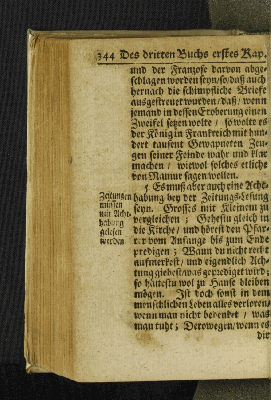 344 Des dritten Buchs erstes Kap.
und der Franzose darvon abge-
schlagen worden seyn/ so/ daß auch
hernach die schimpfliche Briefe
ausgestreuet wurden/ daß/ wenn
jemand in dessen Eroberung einen
Zweifel setzen wolte/ so wolte es
der König in Franckreich mit hun-
dert tausent Gewapneten Zeu-
gen seiner Feinde wahr und klar
machen/ wiewol solches etliche
von Namur sagen wollen.
5. Es muß aber auch eine Acht-
habung bey der Zeitungs-Lesung
seyn. Grosses mit Kleinem zu
vergleichen; Gehestu gleich in
die Kirche/ und hörest den Pfar-
rer vom Anfange bis zum Ende
predigen; Wann du nicht recht
aufmerkest/ und eigendlich Ach-
tung giebest/ was geprediget wird;
so hättestu wol zu Hause bleiben
mögen. Ist doch sonst in dem
menschlichen Leben alles verloren/
wenn man nicht bedenket/ was
man tuht; Derowegen/ wenn es
dir
Zeitungen
müssen
mit Acht-
habung
gelesen
werden